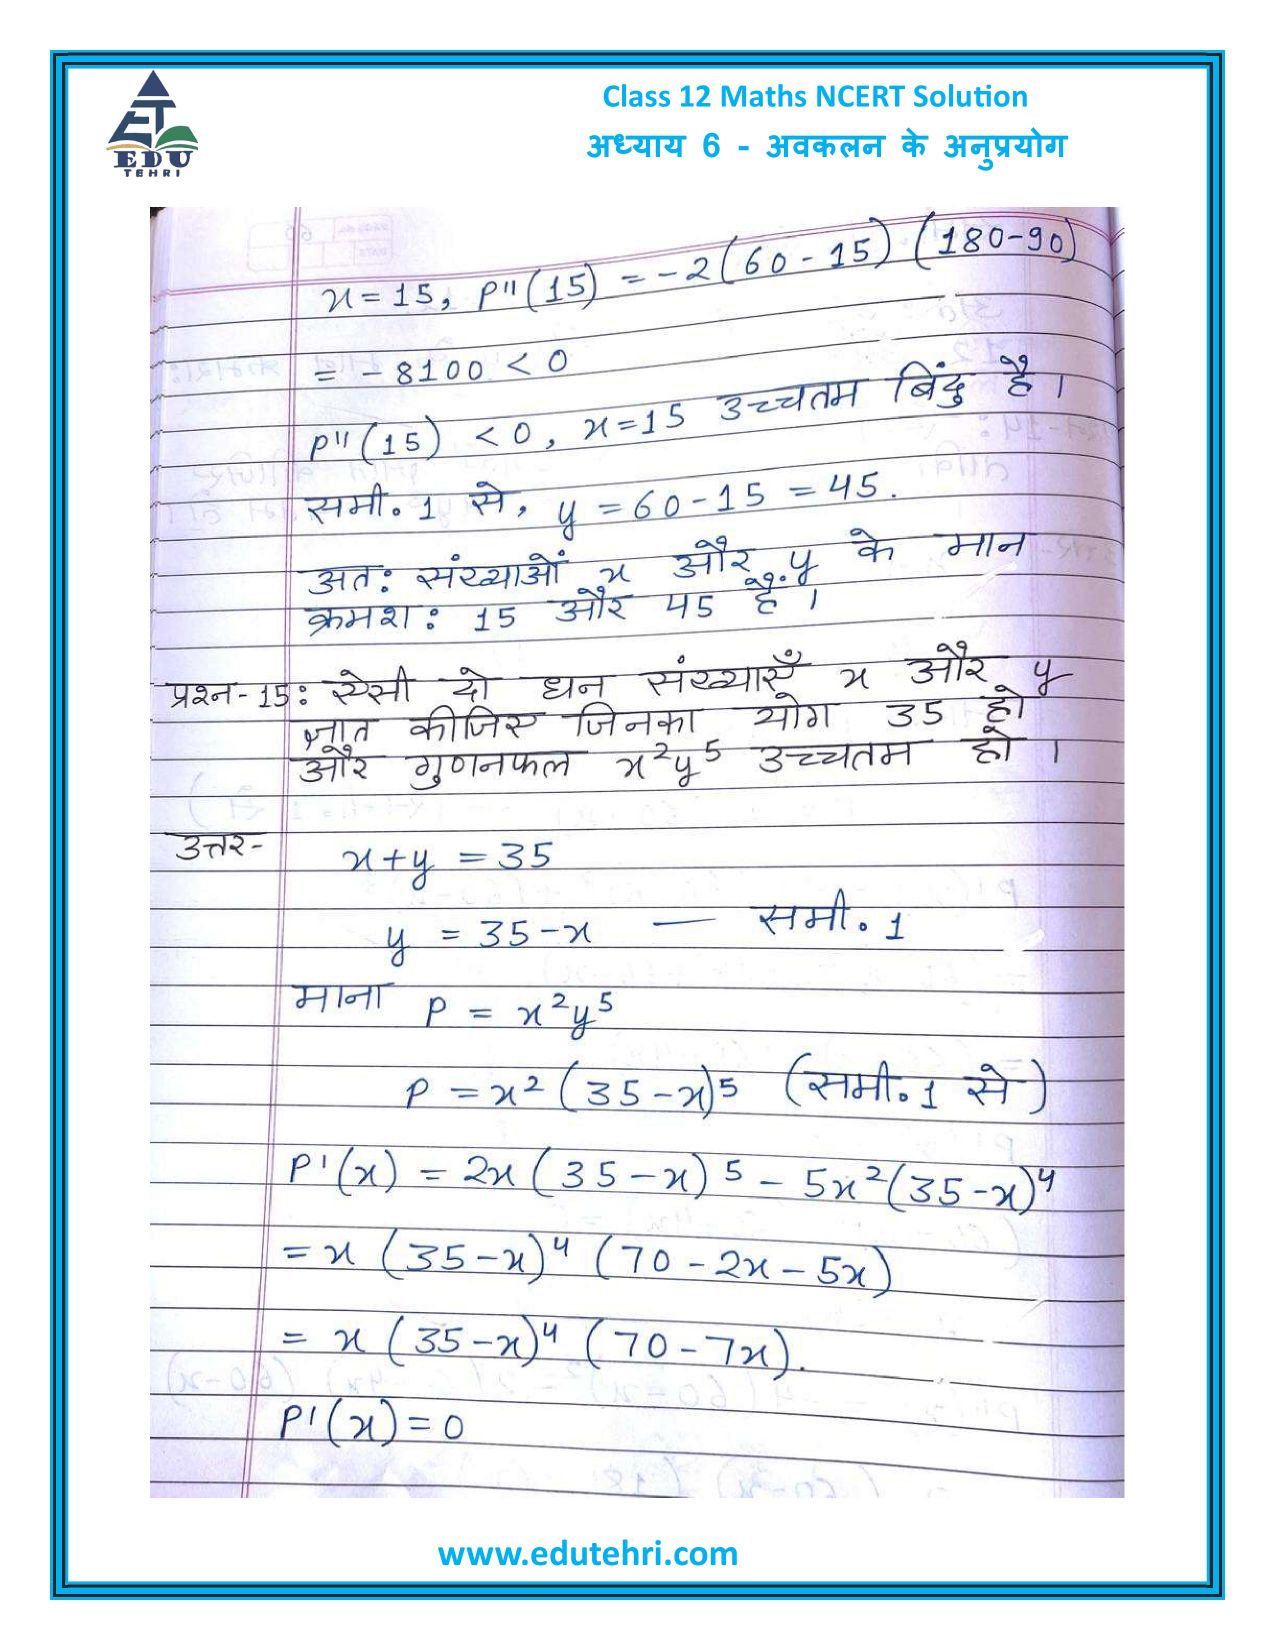 Class 12 Maths NCERT Solution
अध्याय 6 - अवकलन के अनुप्रयोग
ET
EDU
TEHRI
x = 15, P''(15) = -2(60-15)(180-90)
= -8100 < 0
P''(15) < 0, x=15 उच्चतम बिंदु है।
समी. 1 से, y = 60-15 = 45.
अत: संख्याओं x और y के मान
क्रमश: 15 और 45 है।
प्रश्न-15: ऐसी दो धन संख्याएँ x और y
ज्ञात कीजिए जिनका योग 35 हो
और गुणनफल x²y⁵ उच्चतम हो।
उत्तर- x+y = 35
y = 35-x — समी. 1
माना P = x²y⁵
P = x²(35-x)⁵ (समी. 1 से)
P'(x) = 2x(35-x)⁵ - 5x²(35-x)⁴
= x(35-x)⁴(70-2x-5x)
= x(35-x)⁴(70-7x).
P'(x) = 0
www.edutehri.com